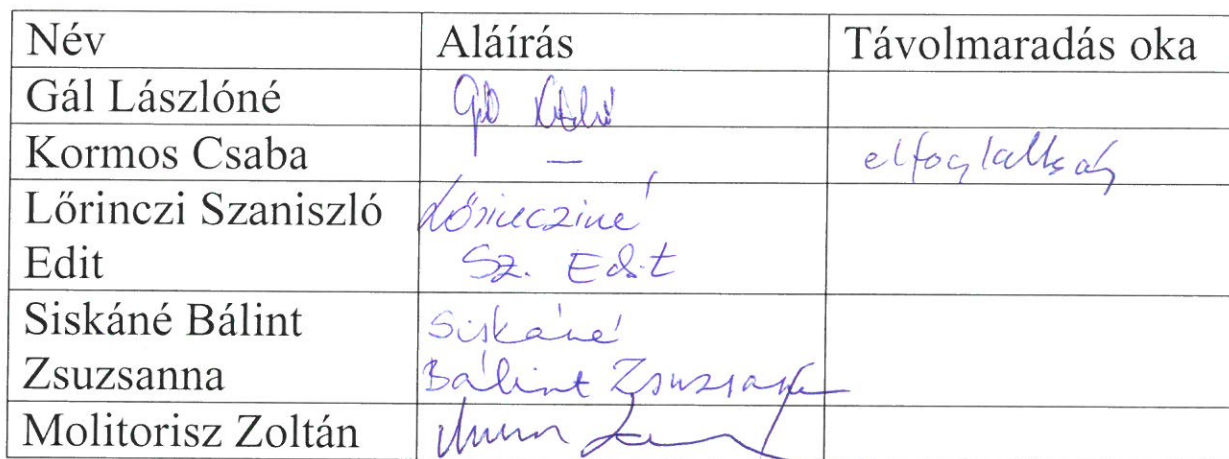 Név Aláírás Távolmaradás oka
Gál Lászlóné Gál
Kormos Csaba — elfoglaltság
Lőrinczi Szaniszló Lőrincziné
Edit Sz. Edit
Siskáné Bálint Siskáné
Zsuzsanna Bálint Zsuzsanna
Molitorisz Zoltán